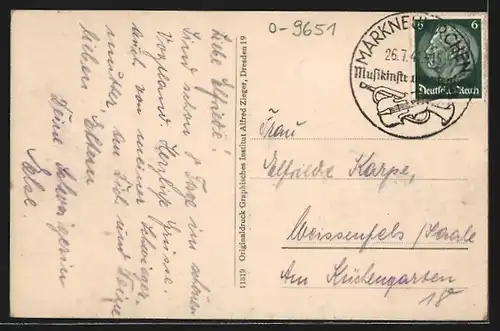 O-9651
MARKNEUKIRCHEN
26.7.4
Musikinstr
6 6
Deutsches Reich
Liebe Elfriede!
Sind schon 8 Tage im schönen
Vogtland. Herzliche Grüsse
auch von meiner Schwieger-
mutter an Dich und Deine
lieben Eltern
Deine Schwägerin
11819 Originaldruck Graphisches Institut Alfred Zieger, Dresden 19
Frau
Elfriede Karpe,
Weissenfels / Saale
Am Küchengarten
18